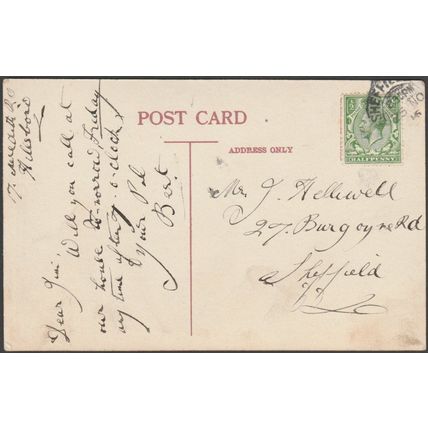 POST CARD
ADDRESS ONLY
Hillsboro
Dear Jim,
Will you call at
our house tomorrow Friday
any time after 7. o-clock,
Your Pal
Bert.
Mr J. Helliwell
27. Burgoyne Rd
Sheffield
HALFPENNY
SHEFFIELD